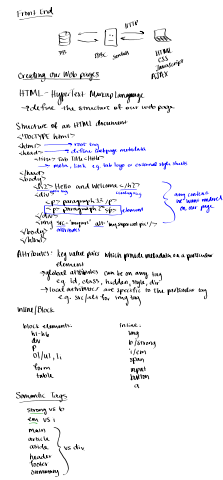 Front End
HTTP
DB
HTML
CSS
Javascript
AJAX
Creating our Web pages
HTML - HyperText Markup Language
→ define the structure of our web page
Structure of an HTML document
<!DOCTYPE html>
<html> → root tag
<head> → define webpage metadata
<title> Tab Title </title>
→ meta, link e.g. tab logo or external style sheets
</head>
<body>
<h2> Hello and Welcome </h2>
<div>
<p> paragraph 1 </p>
<p> paragraph 2 </p> element
</div>
</body>
</html>
attributes
any content
we want rendered
on our page
Attributes: key value pairs which provide metadata on a particular
element
→ global attributes can be on any tag
e.g. id, class, hidden, style, dir
→ local attributes are specific to the particular tag
e.g. src/alt for img tag
Inline/Block
block elements:
h1-h6
div
p
ol/ul, li
form
table
inline:
img
b/strong
i/em
span
input
button
a
Semantic Tags
strong vs b
em vs i
main
article
aside
header
footer
summary
vs div